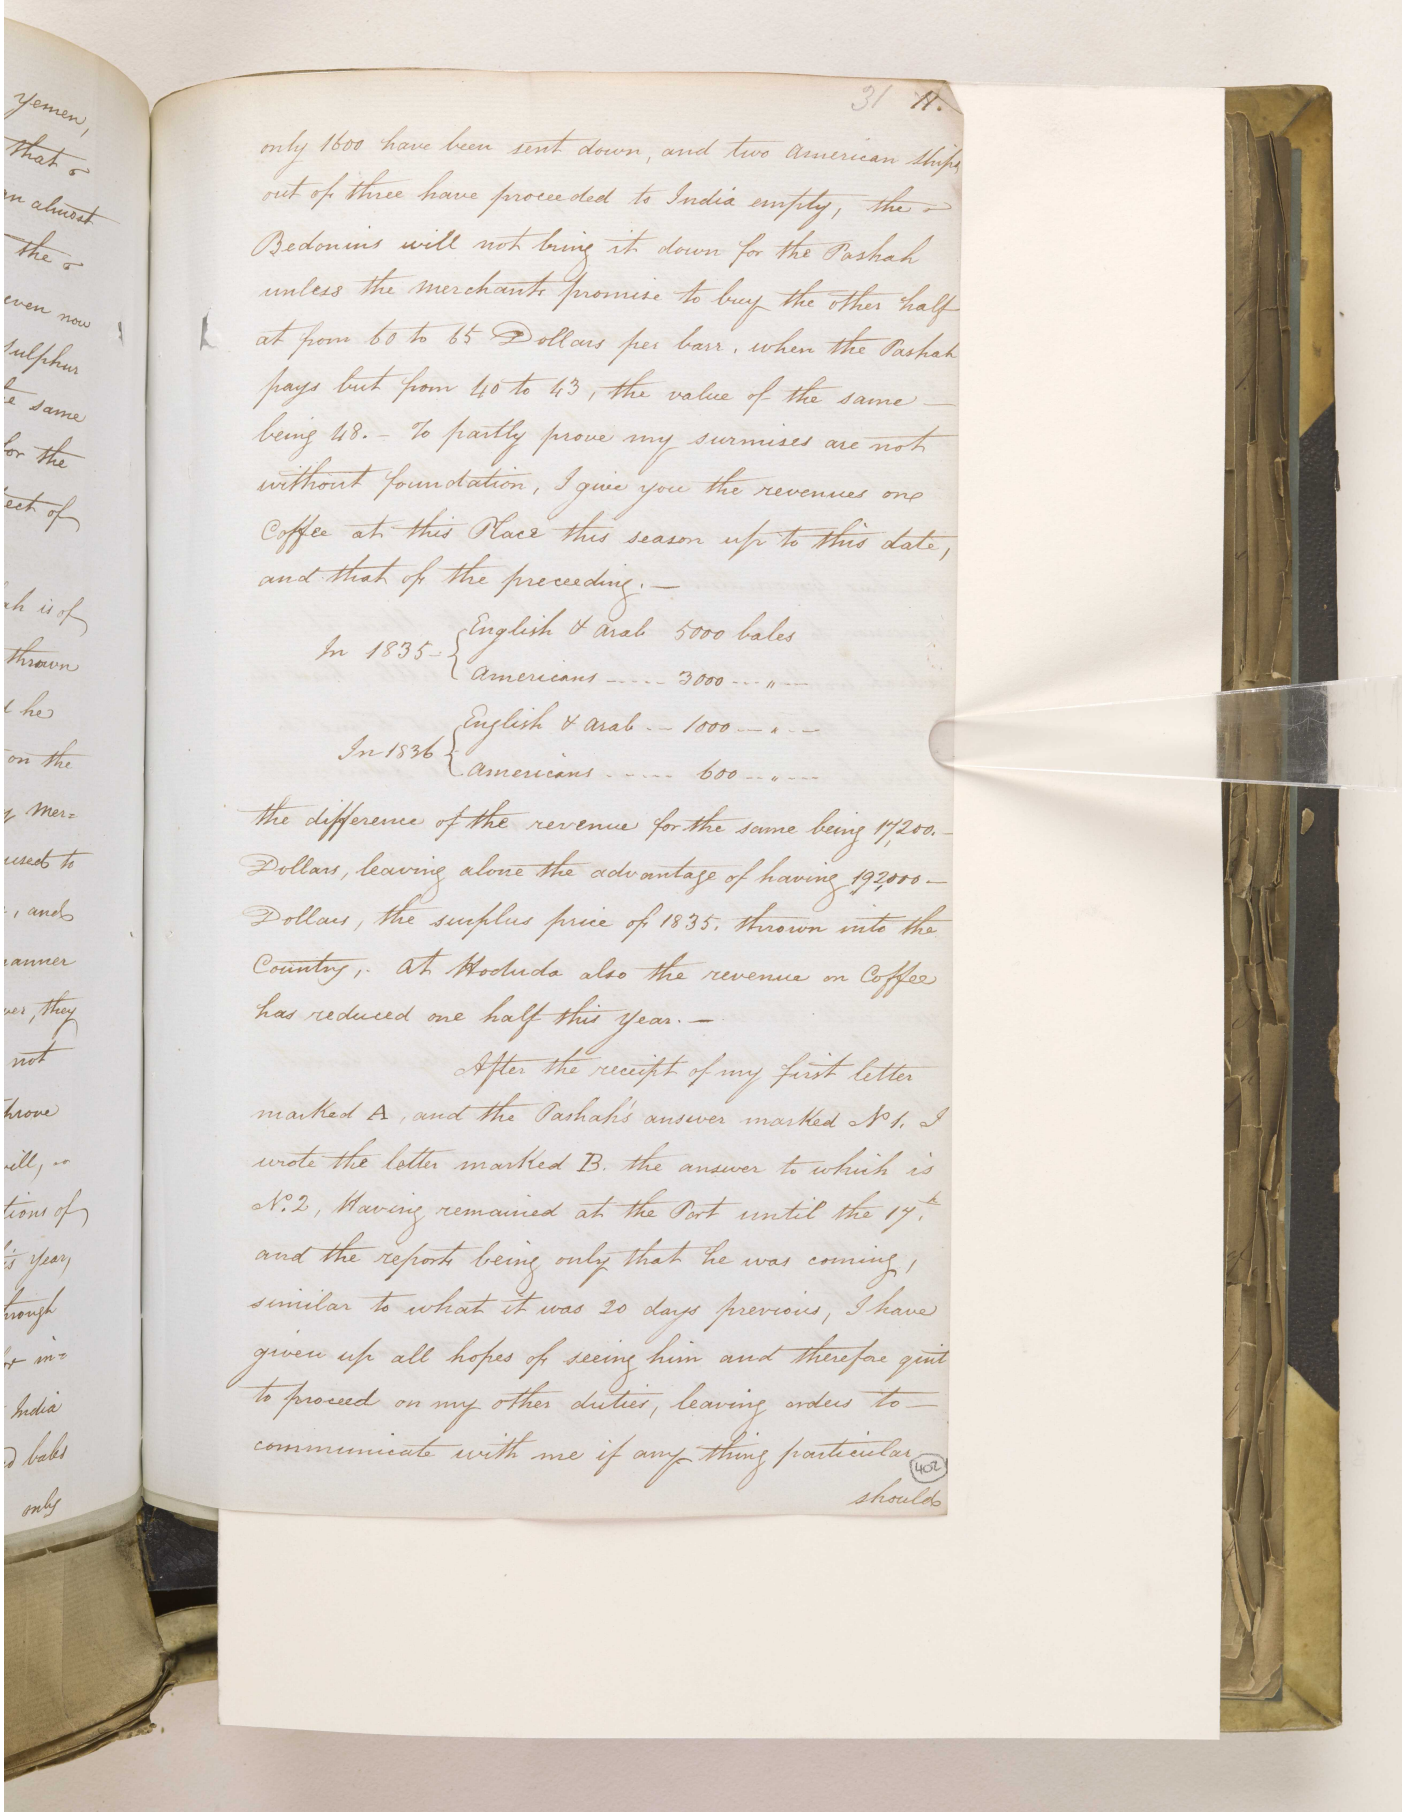 yemen,
that
an almost
the
even now
sulphur
same
for the
ect of
ah is of
thrown
he
on the
mer=
used to
, and
anner
ver, they
not
throve
will,
tions of
year,
through
in=
India
bales
only
31 11.
only 1600 have been sent down, and two American ships
out of three have proceeded to India empty, the
Bedouins will not bring it down for the Pashah
unless the merchants promise to buy the other half
at from 60 to 65 Dollars per barr. when the Pashah
pays but from 40 to 43, the value of the same —
being 48. – To partly prove my surmises are not
without foundation, I give you the revenues on
Coffee at this Place this season up to this date,
and that of the preceeding. —
In 1835 – { English & Arab 5000 bales
Americans ----- 3000 --- " ---
In 1836 { English & Arab -- 1000 --- " ---
Americans ----- 600 --- " ---
the difference of the revenue for the same being 17,200. –
Dollars, leaving alone the advantage of having 192,000 –
Dollars, the surplus price of 1835. thrown into the
Country,. At Hoduda also the revenue on Coffee
has reduced one half this year. —
After the receipt of my first letter
marked A, and the Pashah's answer marked No 1. I
wrote the letter marked B. the answer to which is
No. 2, Having remained at the Port until the 17.th
and the reports being only that he was coming,
similar to what it was 20 days previous, I have
given up all hopes of seeing him and therefore quit
to proceed on my other duties, leaving orders to —
communicate with me if any thing particular
402
should